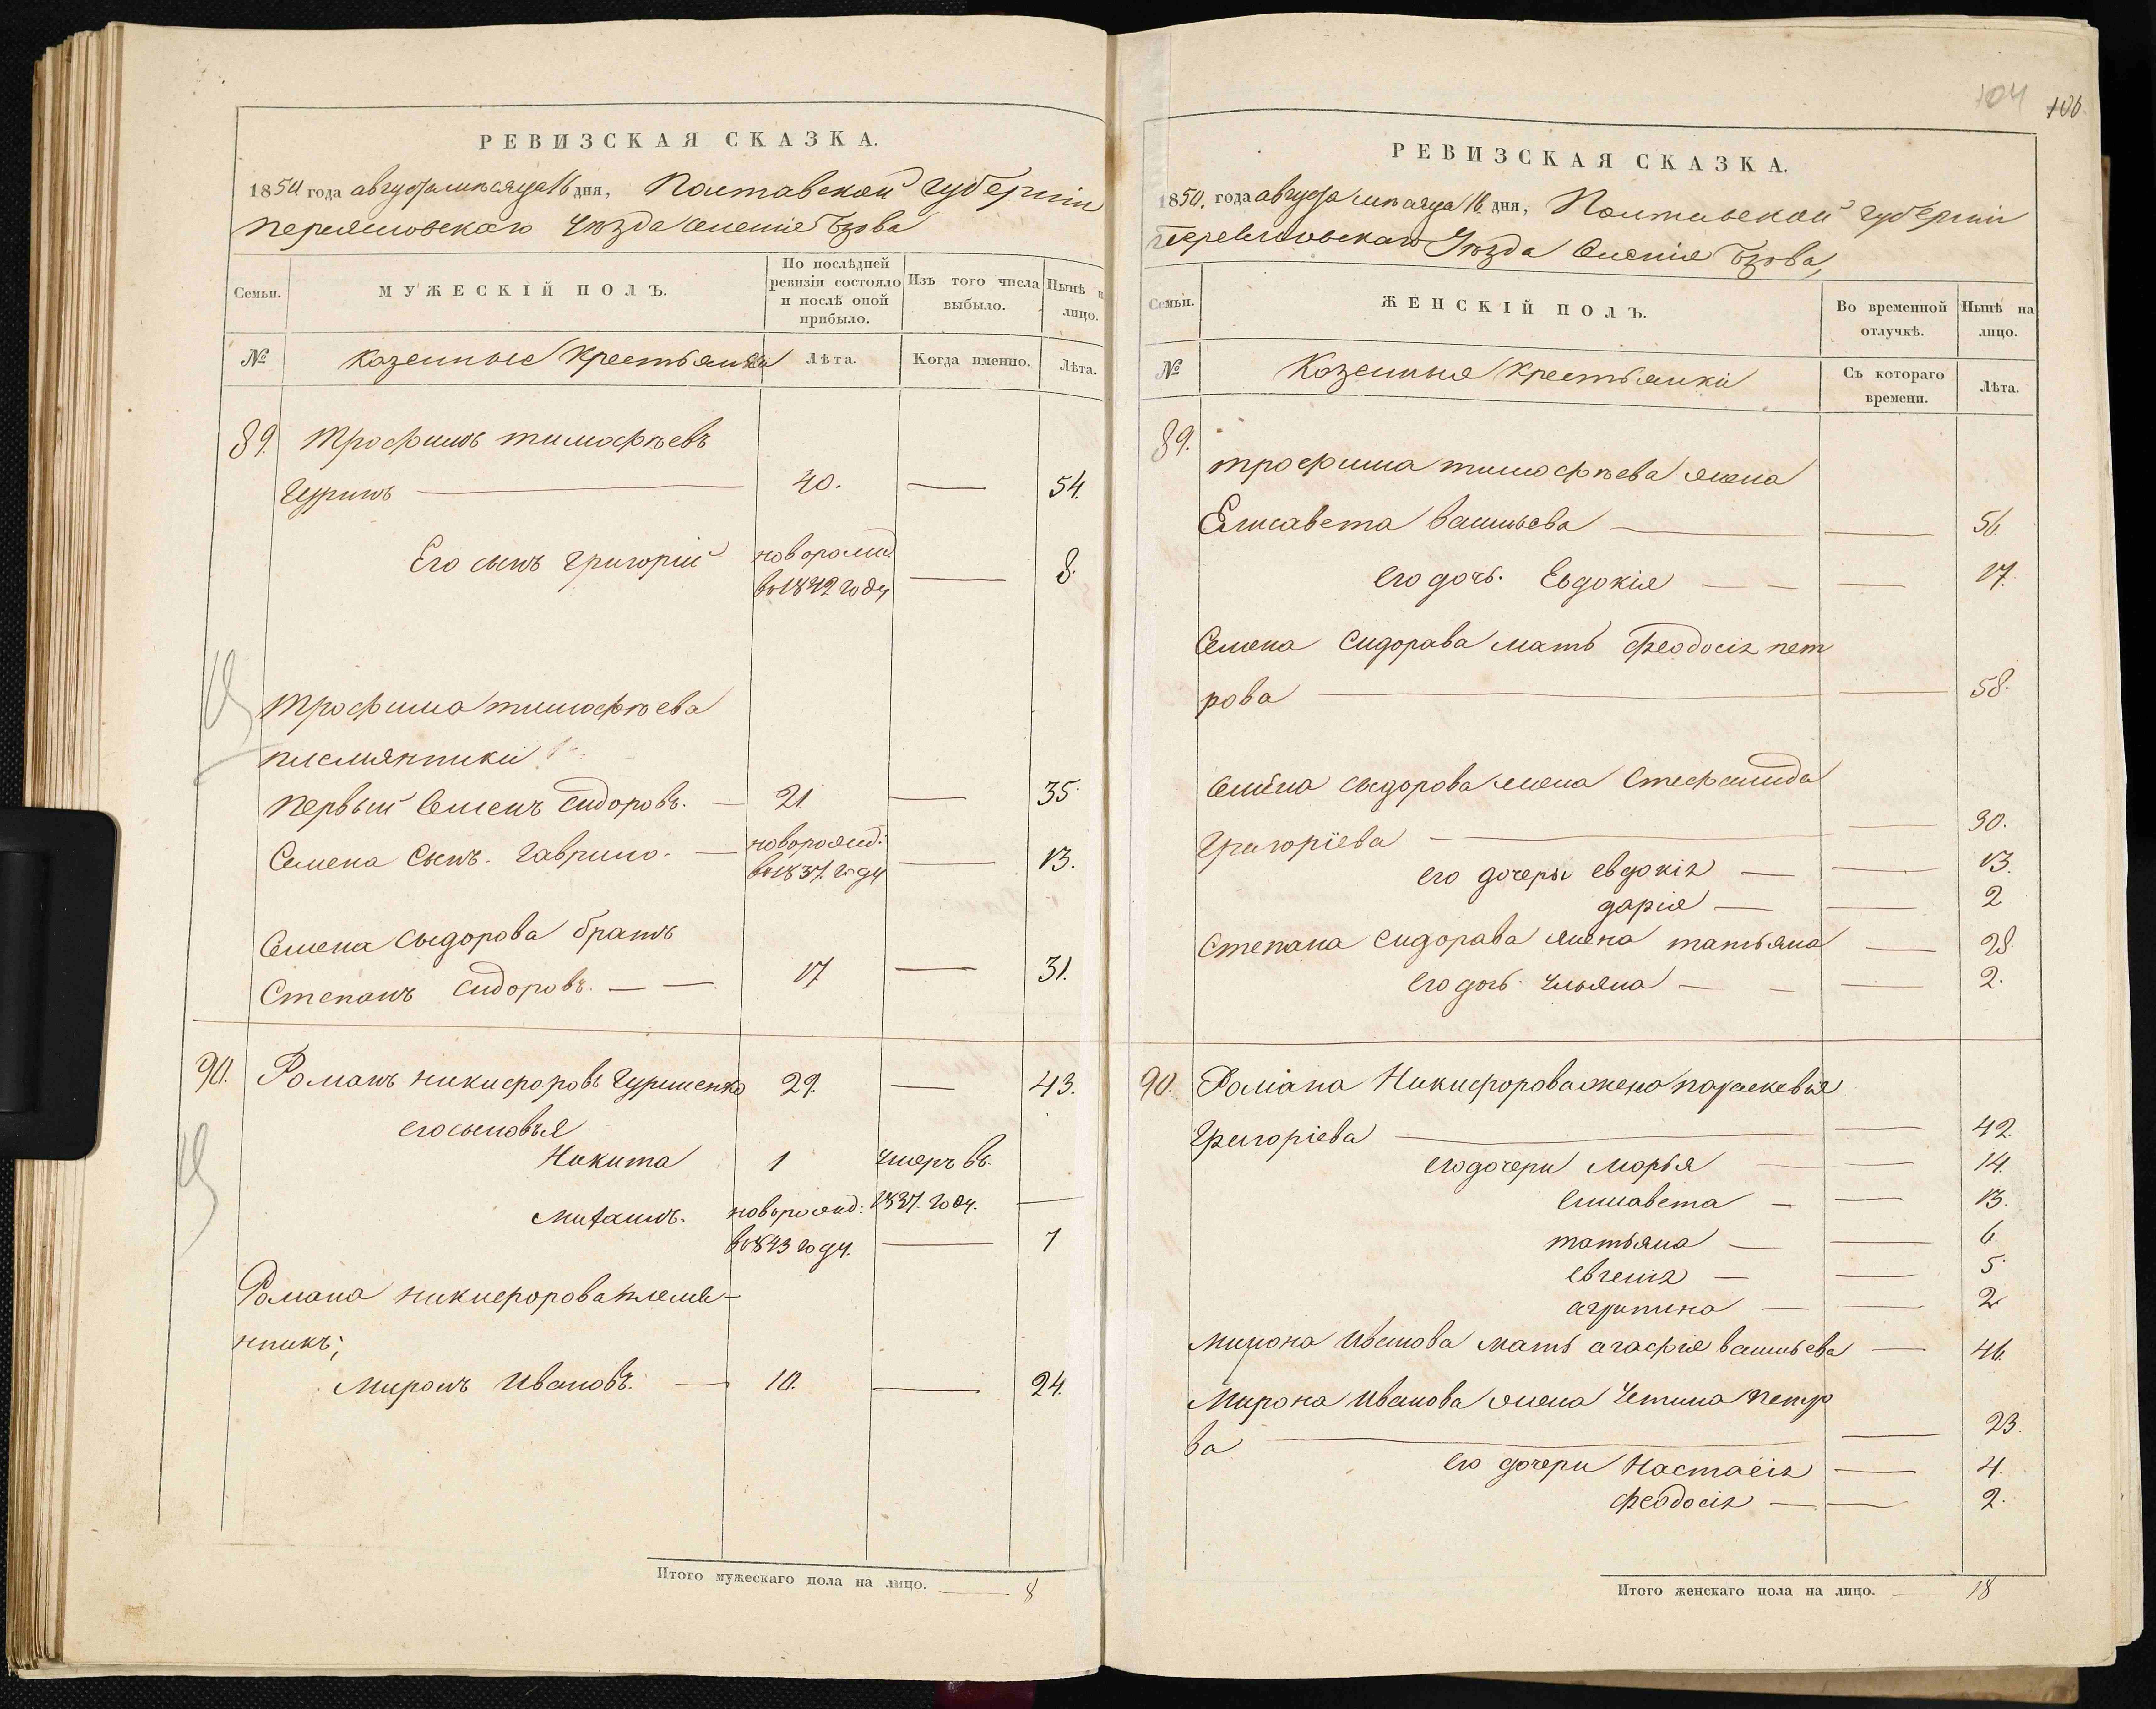 РЕВИЗСКАЯ СКАЗКА.
1850 года августа мѣсяца 16 дня, Полтавской губерніи
Переяловскаго Уѣзда Селеніе Бзова
Семьи.
МУЖЕСКІЙ ПОЛЪ.
По послѣдней ревизіи состояло и послѣ оной прибыло.
Изъ того числа выбыло.
Нынѣ
лицо.
№
Казенные Крестьяны
Лѣта.
Когда именно.
Лѣта.
89. Трофимъ тимофѣевъ
40. 54.
Его сынъ Григорій новорожд 8.
въ 1842 году
Трофима тимофѣева
племянники
Первый Семенъ Сидоровъ. 21 35.
Семена Сынъ. Гаврило. новорожд: 13.
въ 1837 году
Семена Сыдорова братъ
Степанъ Сидоровъ. 17 31.
90. Романъ никифоровъ 29. 43.
его сыновья
Никита 1 умеръ въ
1837. году.
новорожд:
въ 1843 году. 7
Романа никифорова племя-
нникъ;
Миронъ Ивановъ. 10. 24.
Итого мужескаго пола на лицо. 8
104 106
РЕВИЗСКАЯ СКАЗКА.
1850. года августа мѣсяца 16 дня, Полтавской губерніи
Уѣзда Селенія Бзова,
Семьи.
ЖЕНСКІЙ ПОЛЪ.
Во временной отлучкѣ.
Нынѣ на лицо.
№
Казенныя Крестьянки
Съ котораго времени.
Лѣта.
89.
трофима тимофѣева жена
Елисавета васильева 56.
его дочь. Евдокія 17.
Семена Сидорава мать феодосія пет
рова 58.
Семена сыдорова жена Стефанида
Григоріева 30.
его дочеры евдокія 13.
дарія 2
Степана Сидорава жена татьяна 28.
его дочь. Ульяна 2.
90. Романа Никифорова жена параскевія
Григоріева 42.
его дочери Марья 14.
елисавета 13.
татьяна 6
евгенія 5.
агрипина 2
Мирона Иванова мать агафія васильева 46.
Мирона Иванова жена Устина Петро
ва 23.
его дочери Настасія 4.
феодосія 2.
Итого женскаго пола на лицо. 18